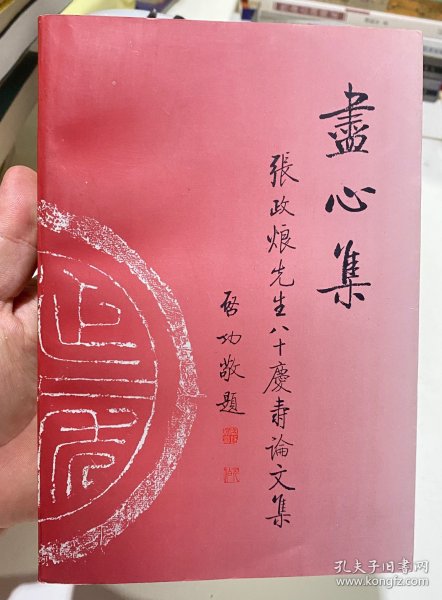 盡心集
張政烺先生八十慶壽論文集
啓功敬題
孔夫子旧书网
www.kongfz.com